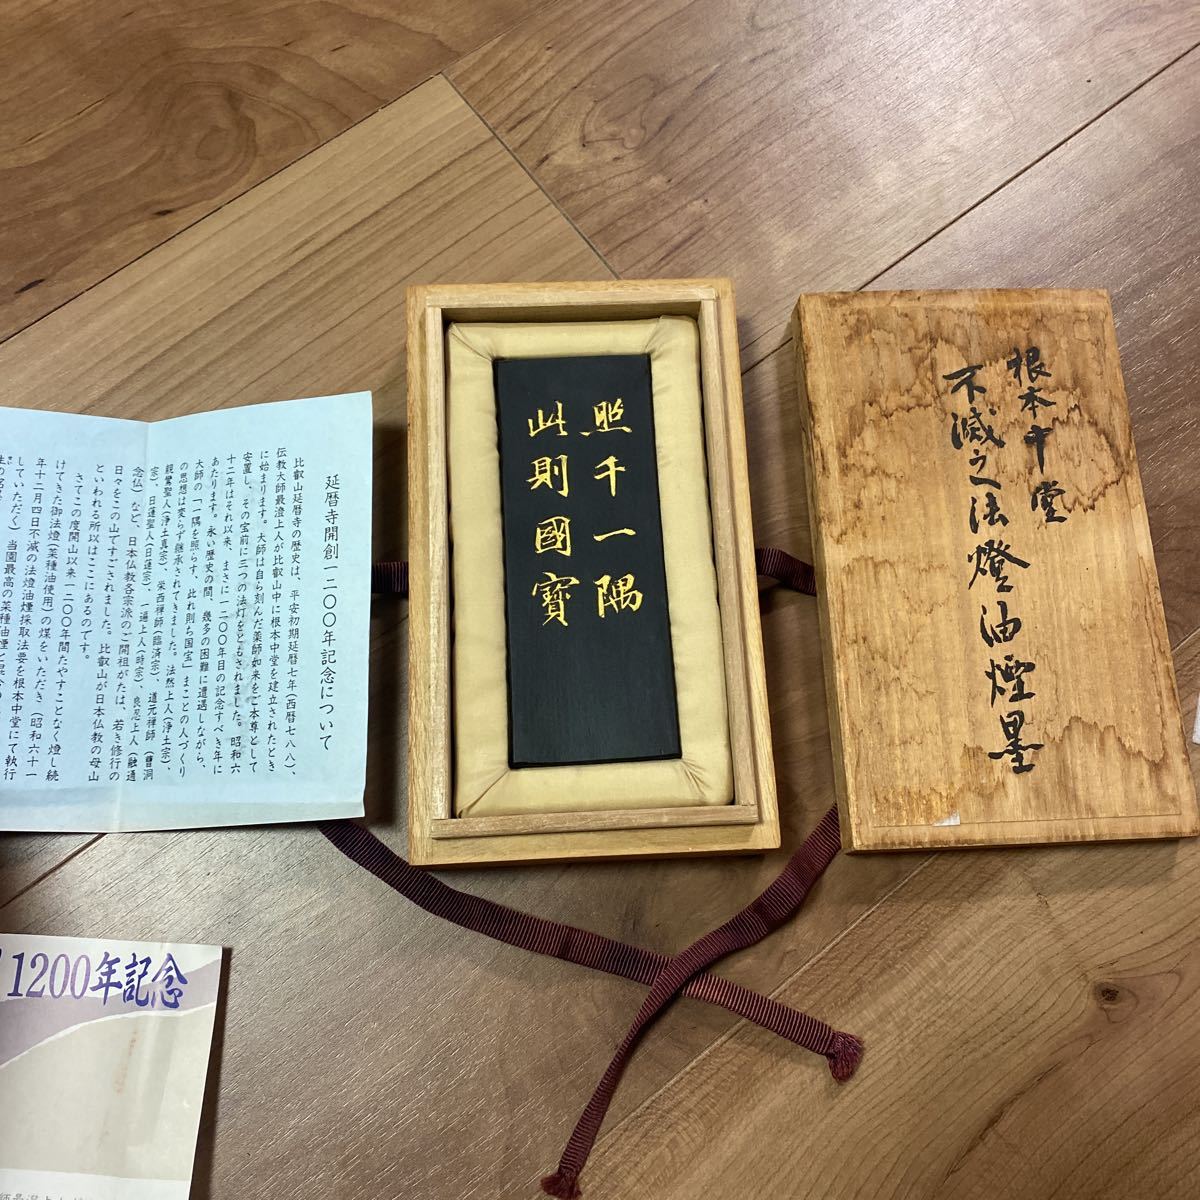 延暦寺開創一二〇〇年記念について
比叡山延暦寺の歴史は、平安初期延暦七年(西暦七八八)、
伝教大師最澄上人が比叡山中に根本中堂を建立されたとき
に始まります。大師は自ら刻んだ薬師如来をご本尊として
安置し、その宝前に三つの法灯をともされました。昭和六
十二年はそれ以来、まさに一二〇〇年目の記念すべき年に
あたります。永い歴史の間、幾多の困難に遭遇しながら、
大師の「一隅を照らす、此れ則ち国宝」まことの人づくり
の思想は変らず継承されてきました。法然上人(浄土宗)、
親鸞聖人(浄土真宗)、栄西禅師(臨済宗)、道元禅師(曹洞
宗)、日蓮聖人(日蓮宗)、一遍上人(時宗)、良忍上人(融通
念仏)など、日本仏教各宗派のご開祖がたは、若き修行の
日々をこの山ですごされました。比叡山が日本仏教の母山
といわれる所以はここにあるのです。
さてこの度開山以来一二〇〇年間たやすことなく燈し続
けてきた御法燈(菜種油使用)の煤をいただき(昭和六十一
年十二月四日不滅の法燈油煙採取法要を根本中堂にて執行
していただく)当園最高の菜種油煙と
照千一隅
此則國寶
根本中堂
不滅之法燈油煙墨
1200年記念